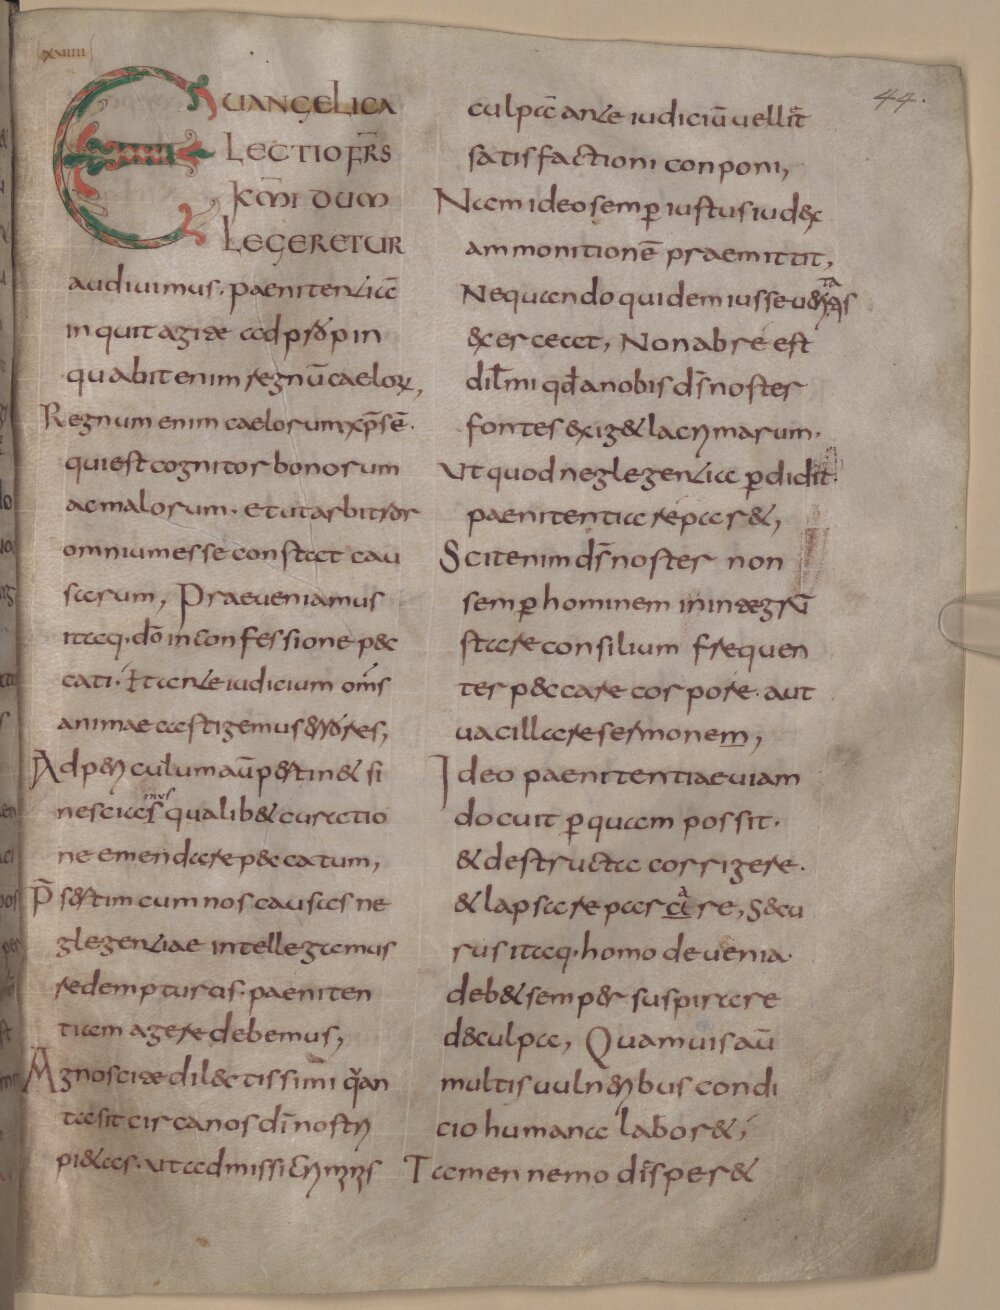 xxiiii
44.
EUANGELICA
LECTIO FR̄S
KM̄I DUM
LEGERETUR
audiuimus. paenitentiā
inquit agite adpropin
quabit enim regnū caelorꝝ,
Regnum enim caelorum xp̄s ē.
qui est cognitor bonorum
ac malorum. et ut arbitror
omnium esse constat cau
sarum, Praeueniamus
itaq. dm̄ in confessione pec
cati. Et ante iudicium om̄s
animae castigemus errores,
Ad periculum aū pertinet si
nesciasmus qualibet curatio
ne emendare peccatum,
P̄sertim cum nos causas ne
glegentiae intellegamus
redempturas. paeniten
tiam agere debemus,
Agnoscite dilectissimi q̄an
ta sit circa nos dī nostri
pietas. ut admissi crimīs
culpā ante iudiciū uellit
satisfactioni conponi,
Nam ideo semp̄ iustus iudex
ammonitionē praemittit,
Ne quando quidem iusse ueritatēs
exerceat, Non ab re est
dil̄mi qđ a nobis ds̄ noster
fontes exiget lacrimarum.
Ut quod neglegentia p̄didit.
paenitentia reparet,
Scit enim ds̄ noster non
semp̄ hominem in integrū
stare consilium frequen
ter peccare corpore. aut
uacillare sermonem,
Ideo paenitentiae uiam
docuit p̄ quam possit.
& destructa corrigere.
& lapsa reparare, Secu
rus itaq. homo de uenia.
debet semper suspirare
de culpa, Quamuis aū
multis uulneribus condi
cio humana laboret,
Tamen nemo disperet